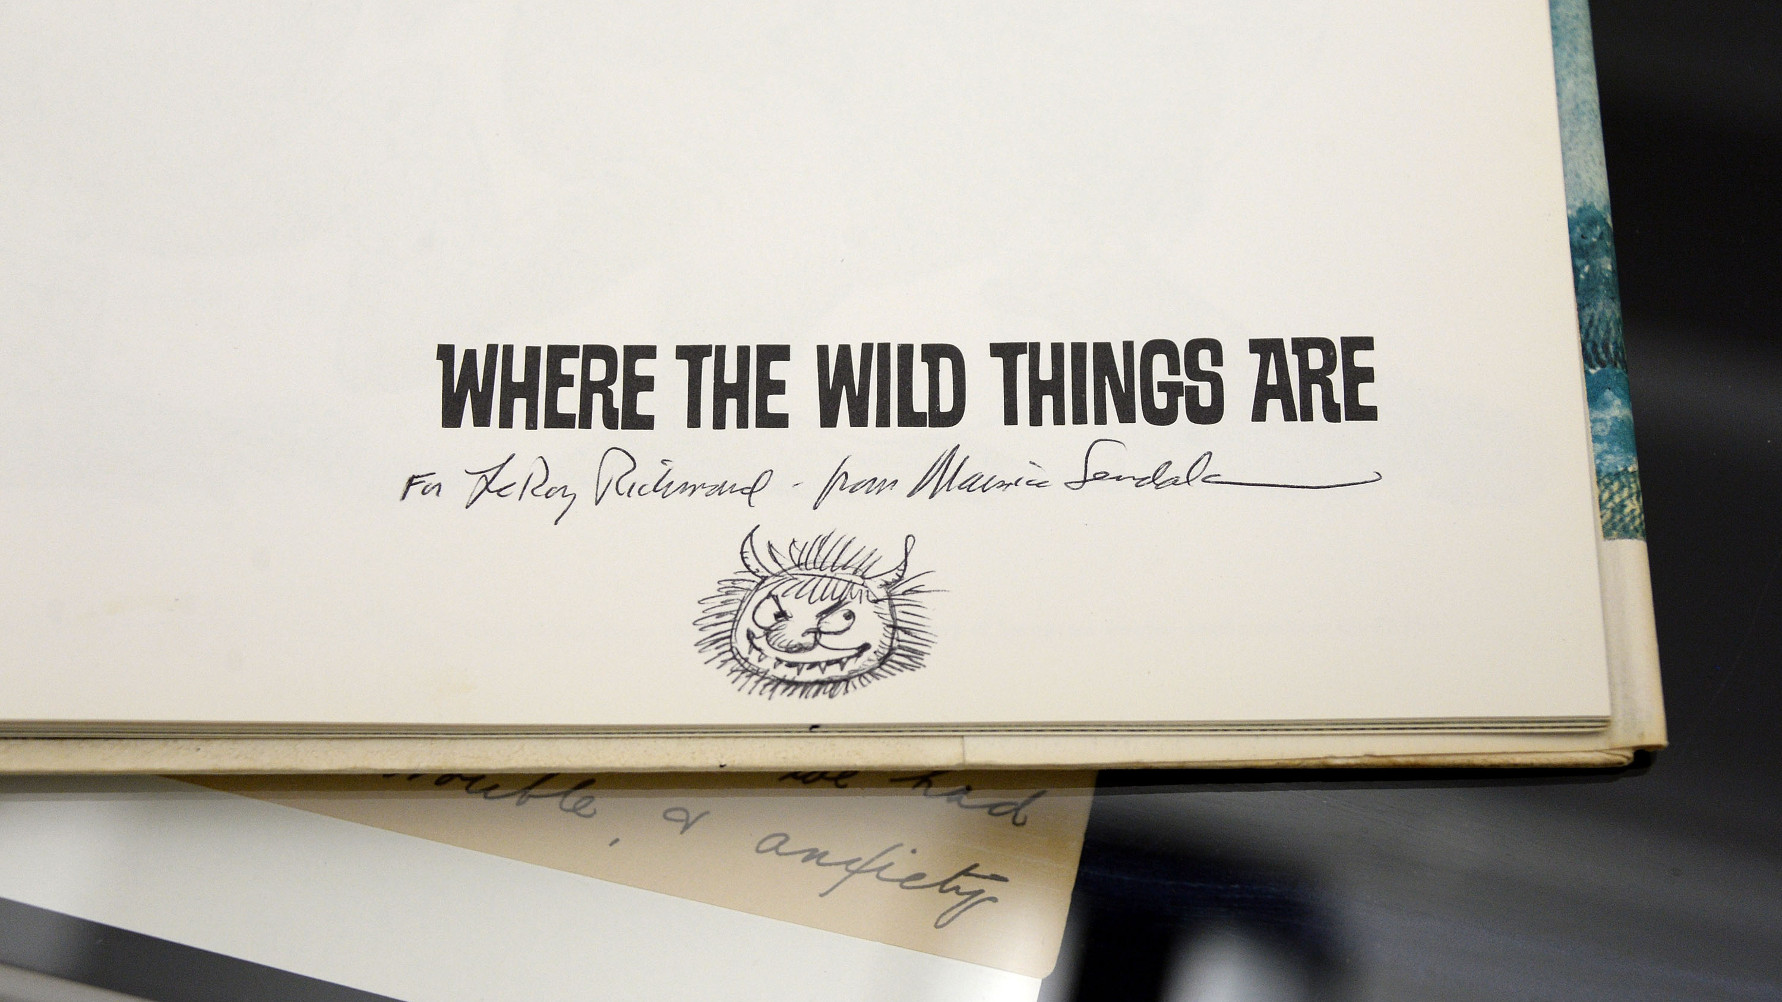 WHERE THE WILD THINGS ARE
For LeRoy Richmond - from Maurice Sendak
trouble, & we had
anxiety